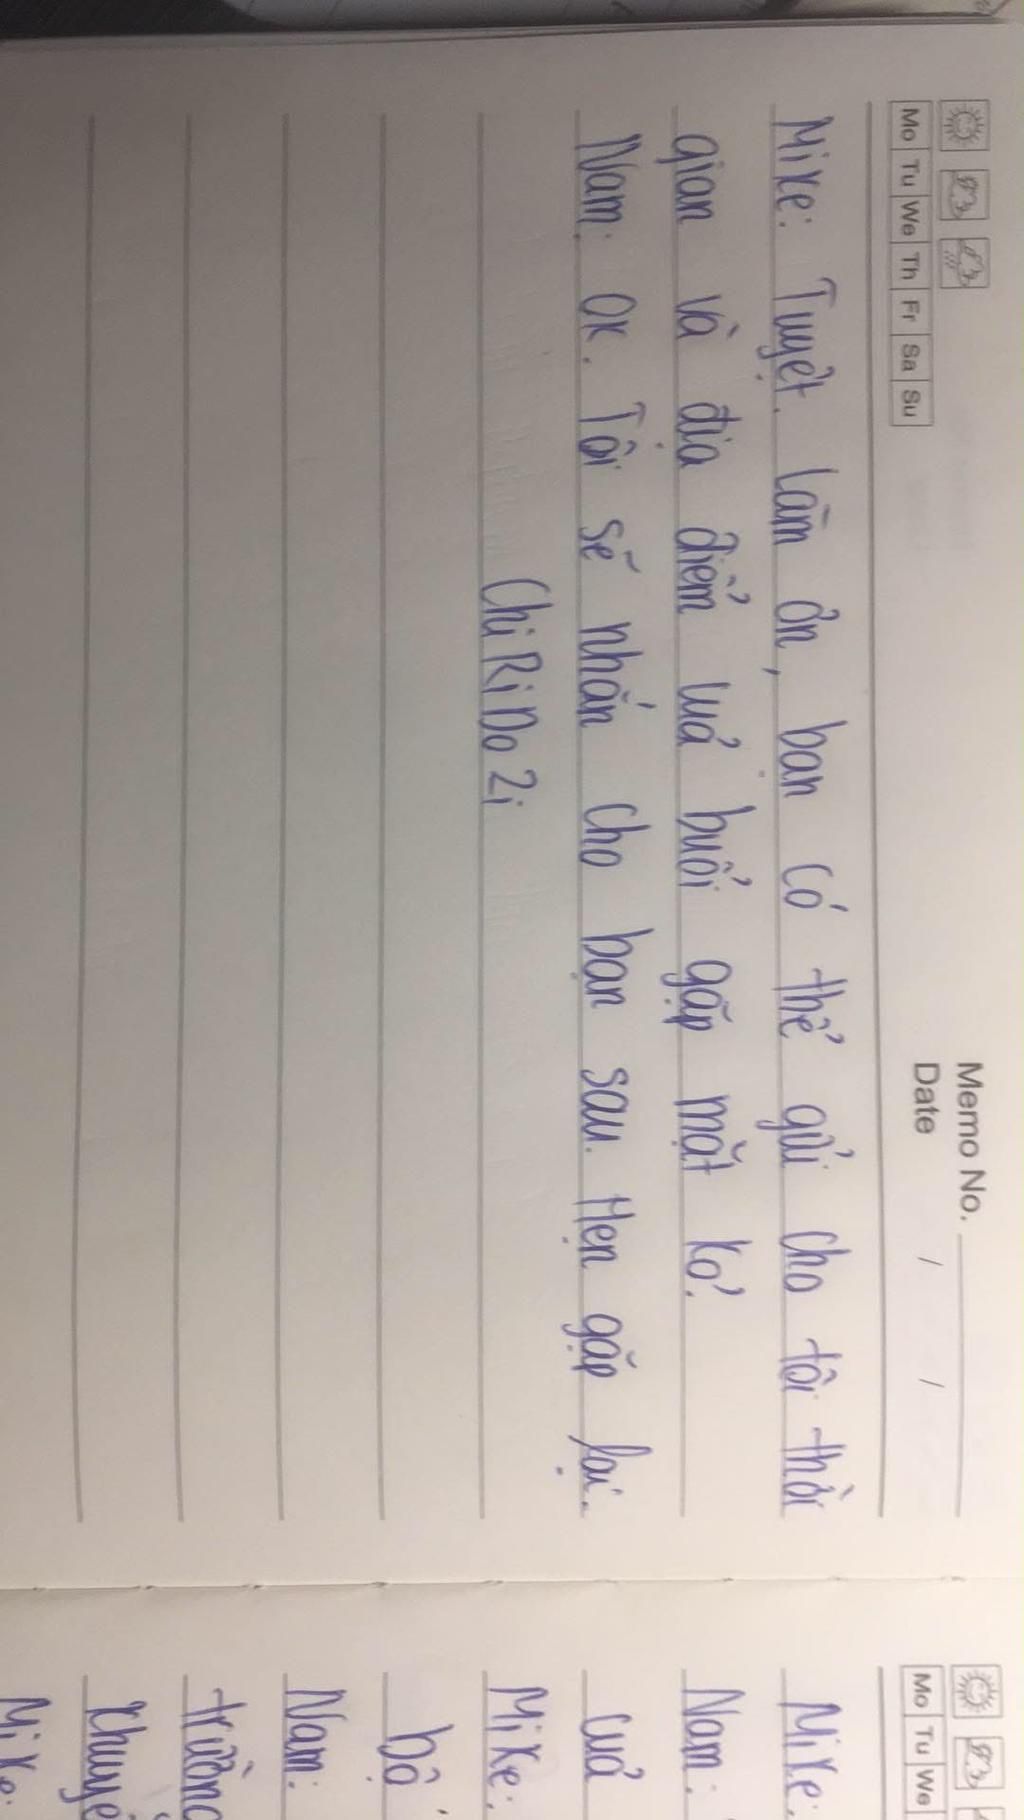 Memo No.
Mo Tu We Th Fr Sa Su
Date / /
Mike: Tuyệt. Làm ơn, bạn có thể gửi cho tôi thời
gian và địa điểm cuả buổi gặp mặt ko?
Nam: OK. Tôi sẽ nhắn cho bạn sau. Hẹn gặp lại.
ChiRiDo2i
Mo Tu We
Mike:
Nam:
cuả
Mike:
bộ
Nam:
trường
Mike: